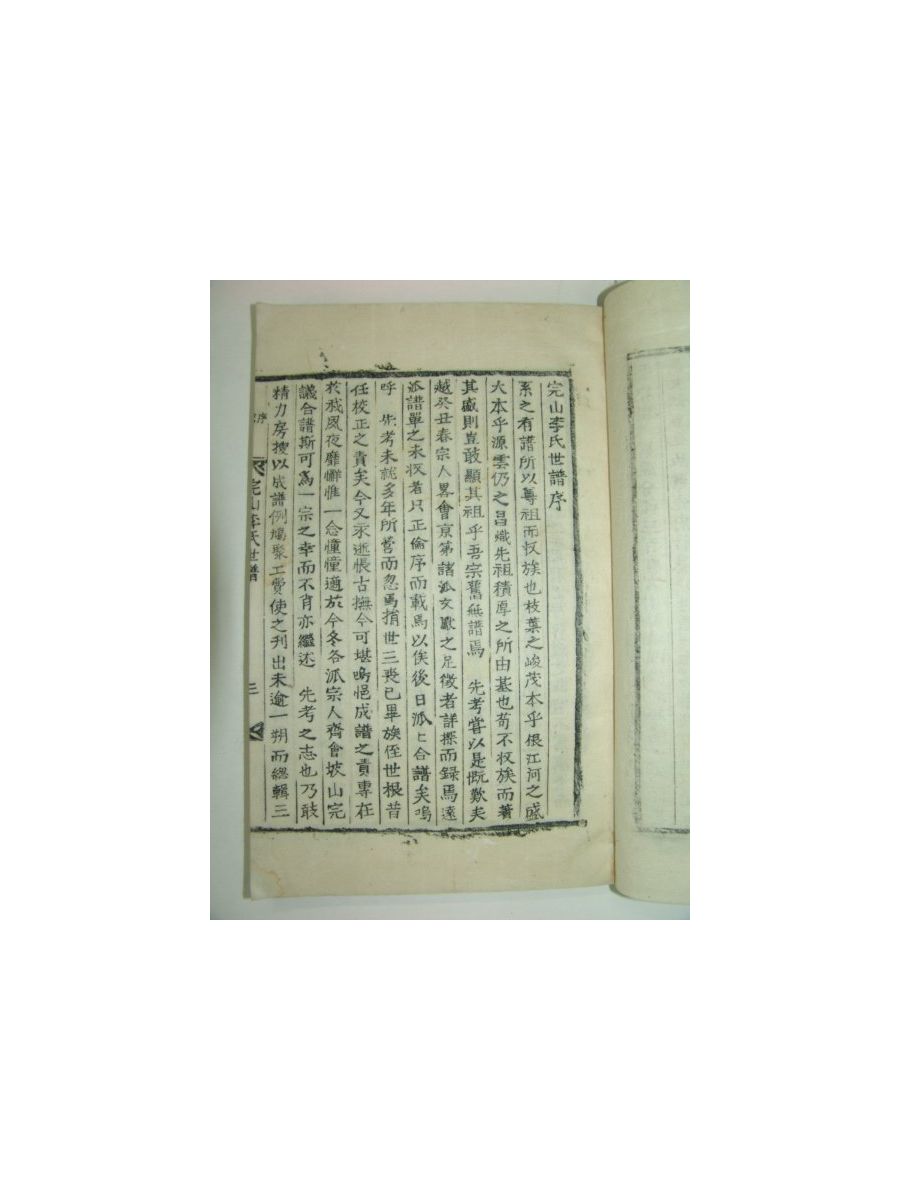 完山李氏世譜序
系之有譜所以尊祖而收族也枝葉之峻茂本乎根江河之盛
大本乎源雲仍之昌熾先祖積厚之所由基也苟不收族而著
其盛則豈敢顯其祖乎吾宗舊無譜焉 先考嘗以是慨歎矣
越癸丑春宗人畧會京第諸派文獻之足徵者詳探而錄焉遠
派譜單之未收者只正倫序而載焉以俟後日派〻合譜矣嗚
呼 先考未就多年所營而忽焉捐世三喪已畢族侄世根昔
任校正之責矣今又永逝悵古撫今可堪嗚悒成譜之責專在
於我夙夜靡懈惟一念憧憧適於今冬各派宗人齊會坡山完
議合譜斯可爲一宗之幸而不肖亦繼述 先考之志也乃敢
精力房搜以成譜例鳩聚工費使之刊出未逾一朔而總輯三
序
完山李氏世譜
三